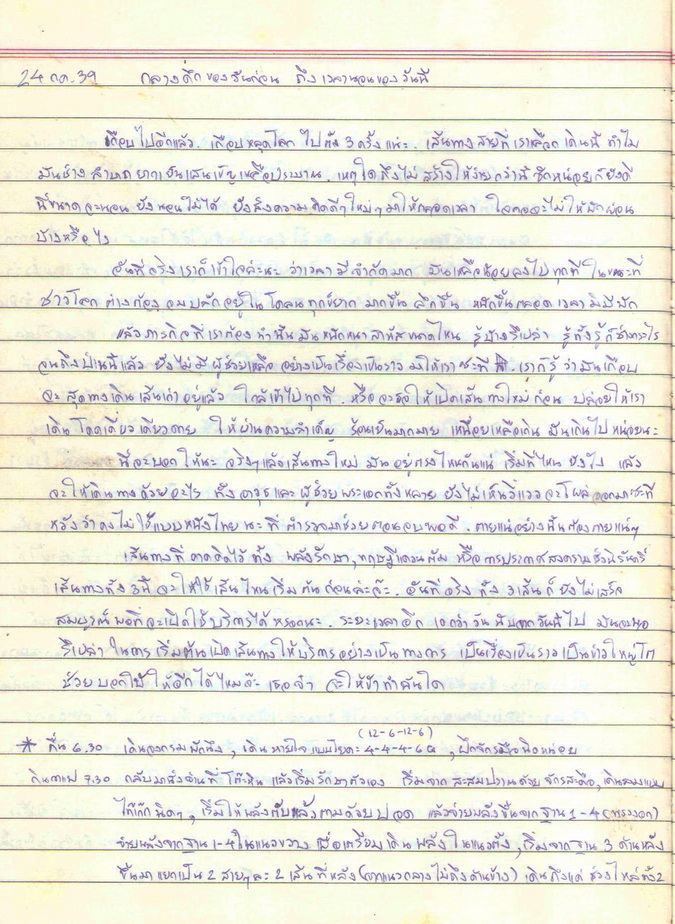 24 กค.39 กลางดึกของวันก่อน ถึง เวลานอนของวันนี้
เกือบไปอีกแล้ว. เกือบหลุดโลก ไปตั้ง 3 ครั้งแน่ะ. เส้นทางสายที่เราเลือก เดินนี้ ทำไม
มันช่าง ลำบาก ยากเย็นแสนเข็ญเหลือประมาณ. เหตุใดถึงไม่ สร้างให้ง่ายกว่านี้ ซักหน่อยก็ยังดี
นี่ขนาดจะนอน ยังนอนไม่ได้ ยังส่งความคิดดีๆใหม่ๆ มาให้ตลอดเวลา ใจคอจะไม่ให้พักผ่อน
บ้างหรือไง
อันที่จริงเราก็เข้าใจละนะ ว่าเวลามีจำกัดมาก มันเหลือน้อยลงไปทุกที ในขณะที่
ชาวโลก ต่างก็ต้องจมปลักอยู่ในโคลนทุกข์ยาก มากขึ้น ลึกขึ้น หนักขึ้นตลอดเวลามิมีพัก
แล้วภารกิจที่เราต้องทำนั้นมันหนักหนาสาหัสขนาดไหน รู้บ้างรึเปล่า รู้ทั้งรู้ก็
จนถึงป่านนี้แล้ว ยังไม่มีผู้ช่วยเหลือ อย่างเป็นเรื่องเป็นราว มาให้เราซะที. เราก็รู้ว่ามันเกือบ
จะสุดทางเดินเส้นเก่าอยู่แล้ว ใกล้เข้าไปทุกที. หรือจะรอให้เปิดเส้นทางใหม่ก่อน ปล่อยให้เรา
เดินโดดเดี่ยวเดียวดาย ให้ผ่านความลำเค็ญ ร้อนเย็นมากมาย เหนื่อยเหลือเกิน มันเกินไปหน่อยนะ
นี่จะบอกให้นะ จริงๆแล้วเส้นทางใหม่ มันอยู่ตรงไหนกันแน่ เริ่มที่ไหน ยังไง แล้ว
จะให้เดินทางด้วยอะไร ทั้งอาวุธและผู้ช่วยพระเอกทั้งหลาย ยังไม่เห็นวี่แววจะโผล่ออกมาซะที
หวังว่าคงไม่ใช้แบบหนังไทยนะ ที่ตำรวจมาช่วยตอนจบพอดี. ตายแน่อย่างนั้นต้องตายแน่ๆ
เส้นทางที่คาดคิดไว้ทั้ง พลังรักษา, ทฤษฎีควอนตัม หรือการประกาศสงครามชั่วนิรันดร์
เส้นทางทั้ง 3 นี้ จะให้ใช้เส้นไหนเริ่มต้นก่อนล่ะค๊ะ. อันที่จริง ทั้ง 3 เส้นก็ยังไม่เสร็จ
สมบูรณ์ พอที่จะเปิดใช้บริการได้หรอกนะ. ระยะเวลาอีก วัน นับจากวันนี้ไป มันจะพอ
รึเปล่า ในการเริ่มต้นเปิดเส้นทางให้บริการอย่างเป็นทางการ เป็นเรื่องเป็นราวเป็นข่าวใหญ่โต
ช่วยบอกใบ้ให้อีกได้ไหมค๊ะ เธอจ๋า จะให้ข้าทำฉันใด
(12-6-12-6)
* ตื่น 6.30 เดินจงกรมพักนึง, เดินหายใจแบบโยคะ 4-4-4-6, ฝึกจักรมือนิดหน่อย
กินกาแฟ 7.30 กลับมานั่งอ่านที่ โต๊ะหิน แล้วเริ่มรักษาตัวเอง เริ่มจาก สะสมปราณด้วยจักรสะดือ, เดินลมแบบ
ไท้เก๊ก นิดๆ, เริ่มให้พลัง ด้วยปอด แล้วจ่ายพลังขึ้นจากฐาน 1-4
จ่ายพลังจากฐาน 1-4 ในแนวขวาง เพื่อเตรียมเดินพลังในแนวตั้ง, เริ่มจากฐาน 3 ด้านหลัง
ขึ้นมาแยกเป็น 2 สายๆละ 2 เส้นที่หลัง (จากแนวกลางไม่ถึงด้านข้าง) เดินถึงแค่ ช่วงไหล่ทั้ง 2